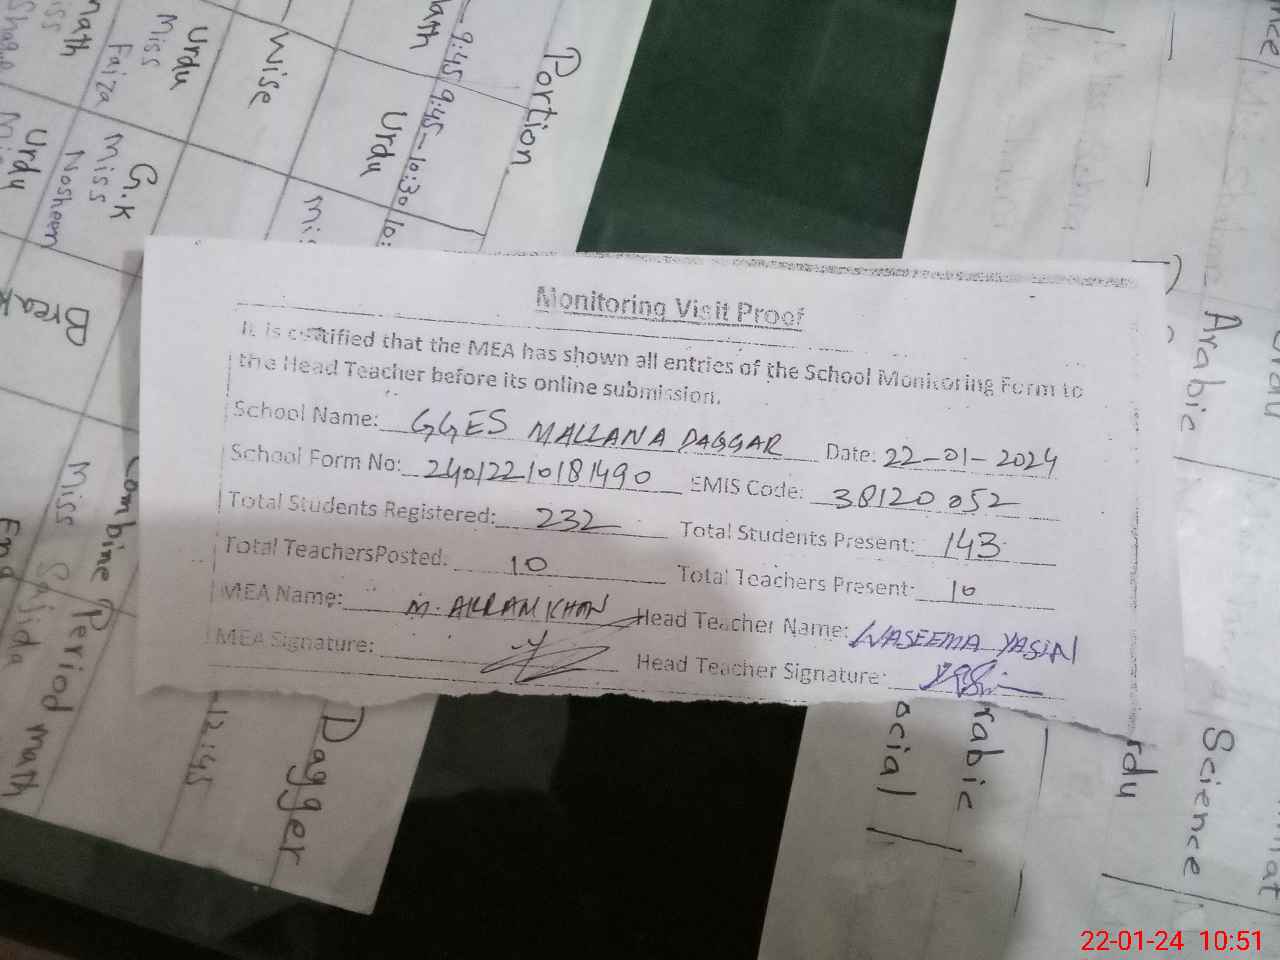 Monitoring Visit Proof
It is certified that the MEA has shown all entries of the School Monitoring Form to
the Head Teacher before its online submission.
School Name: GGES MALLANA DAGGAR Date: 22-01-2024
School Form No: 24012210181490 EMIS Code: 38120052
Total Students Registered: 232 Total Students Present: 143
Total TeachersPosted: 10 Total Teachers Present: 10
MEA Name: M. AKRAM KHAN Head Teacher Name: WASEEMA YASIN
MEA Signature: Head Teacher Signature:
Portion
9:45 9:45-10:30 10:
Urdu
Wise
Urdu
Miss
Faiza
G.K
Miss
Nosheen
Urdu
Break
Combine Period math
Miss Sajida
Eng
12:45
Dagger
Arabic
Science
22-01-24 10:51